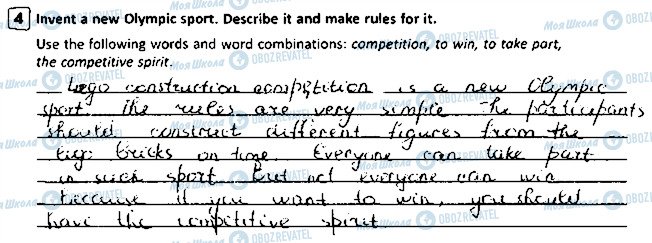 4 Invent a new Olympic sport. Describe it and make rules for it.
Use the following words and word combinations: competition, to win, to take part,
the competitive spirit.
Lego construction competition is a new Olympic
sport. The rules are very simple. The participants
should construct different figures from the
Lego bricks on time. Everyone can take part
in such sport. But not everyone can win
because if you want to win, you should
have the competitive spirit.
Моя Школа OBOZREVATEL